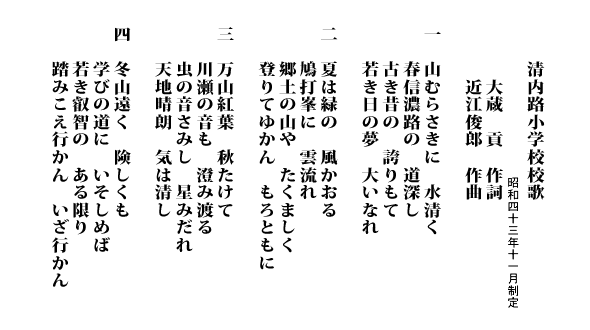 清内路小学校校歌
昭和四十三年十一月制定
大蔵　貢　作詞
近江俊郎　作曲
一　山むらさきに　水清く
春信濃路の　道深し
古き昔の　誇りもて
若き日の夢　大いなれ
二　夏は緑の　風かおる
鳩打峯に　雲流れ
郷土の山や　たくましく
登りてゆかん　もろともに
三　万山紅葉　秋たけて
川瀬の音も　澄み渡る
虫の音さみし　星みだれ
天地晴朗　気は清し
四　冬山遠く　険しくも
学びの道に　いそしめば
若き叡智の　ある限り
踏みこえ行かん　いざ行かん